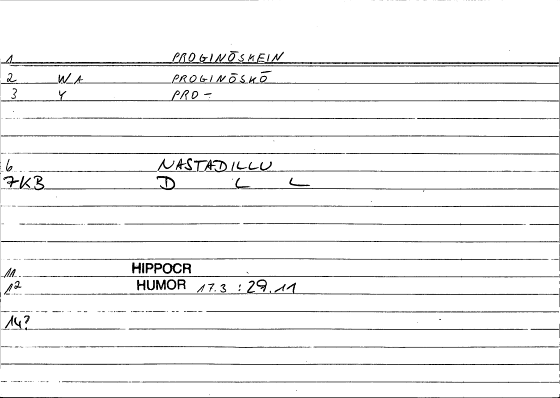 1 PROGINŌSKEIN
2 WA PROGINŌSKŌ
3 Y PRO-
6 NASTADILLU
7KB D L L
11 HIPPOCR
12 HUMOR 17.3 : 29.11
14?